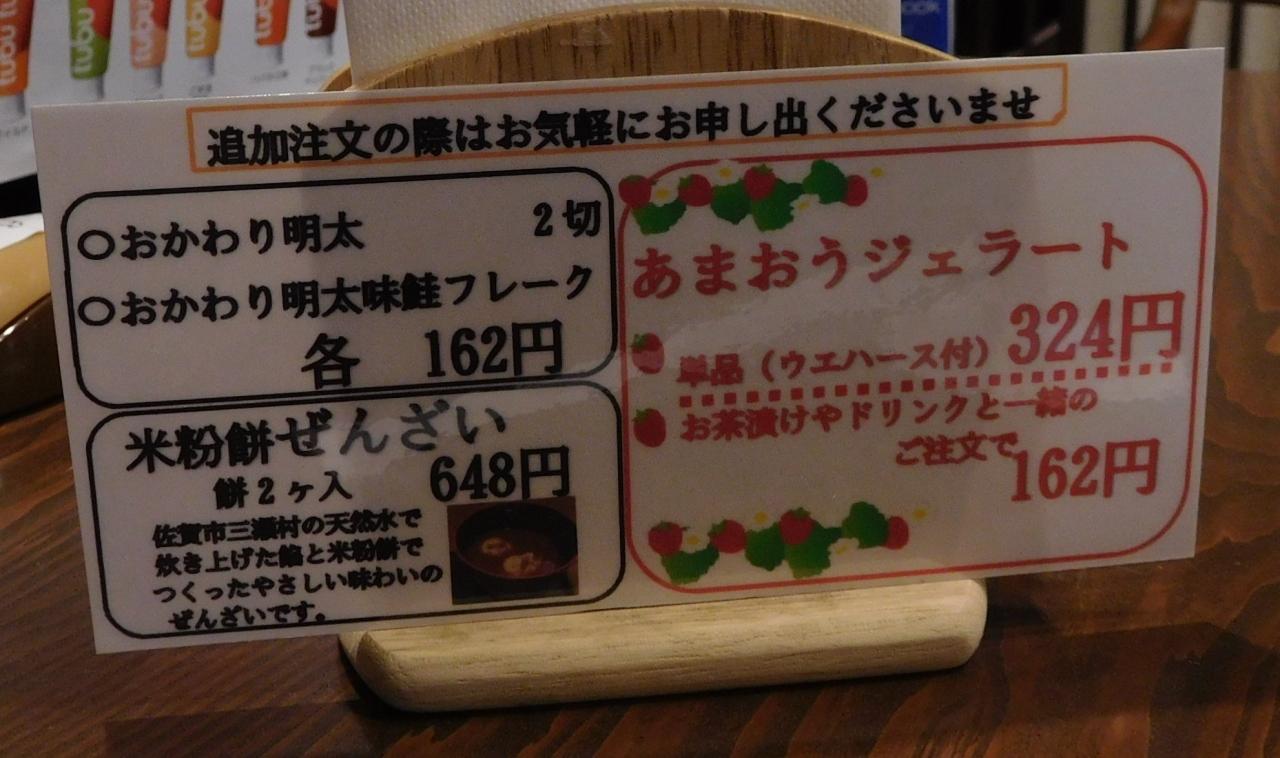 tubu
tubu
tubu
tubu
tubu
追加注文の際はお気軽にお申し出くださいませ
○おかわり明太 2切
○おかわり明太味鮭フレーク
各 162円
米粉餅ぜんざい
餅2ヶ入 648円
佐賀市三瀬村の天然水で
炊き上げた餡と米粉餅で
つくったやさしい味わいの
ぜんざいです。
あまおうジェラート
単品（ウエハース付）324円
お茶漬けやドリンクと一緒の
ご注文で162円